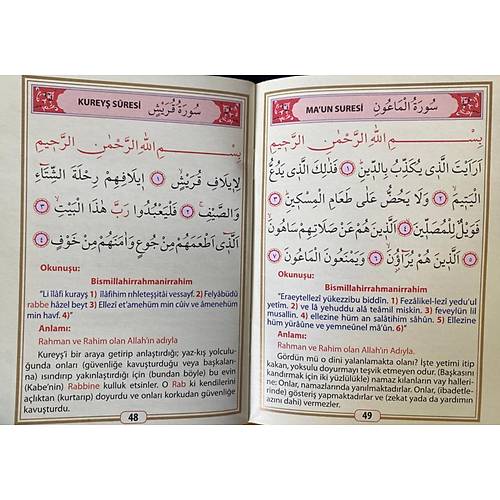 KUREYŞ SÛRESİ سُورَةُ قُرَيْشٍ
بِسْــــمِ اللهِ الرَّحْمٰنِ الرَّحِيمِ
لِاِيلَافِ قُرَيْشٍۙ ﴿١﴾ اٖيلَافِهِمْ رِحْلَةَ الشِّتَٓاءِ
وَالصَّيْفِۚ ﴿٢﴾ فَلْيَعْبُدُوا رَبَّ هٰذَا الْبَيْتِۙ ﴿٣﴾
اَلَّذٖٓى اَطْعَمَهُمْ مِنْ جُوعٍ وَاٰمَنَهُمْ مِنْ خَوْفٍ ﴿٤﴾
Okunuşu:
Bismillahirrahmanirrahim
"Li ilâfi kurayş 1) ilâfihim rıhleteşşitâi vessayf. 2) Felyâbüdû
rabbe hâzel beyt 3) Ellezî et'amehüm min cûiv ve âmenehüm
min havf. 4)"
Anlamı:
Rahman ve Rahim olan Allah'ın adıyla
Kureyş'i bir araya getirip anlaştırdığı; yaz-kış yolculu-
ğunda onları (güvenliğe kavuşturduğu veya başkaları-
na) ısındırıp yakınlaştırdığı için (bundan böyle) bu evin
(Kabe'nin) Rabbine kulluk etsinler. O Rab ki kendilerini
açlıktan (kurtarıp) doyurdu ve onları korkudan güvenliğe
kavuşturdu.
48
MA'UN SURESİ سُورَةُ الْمَاعُونِ
بِسْــــمِ اللهِ الرَّحْمٰنِ الرَّحِيمِ
اَرَاَيْتَ الَّذٖى يُكَذِّبُ بِالدّٖينِۜ ﴿١﴾ فَذٰلِكَ الَّذٖى يَدُعُّ
الْيَتٖيمَۙ ﴿٢﴾ وَلَا يَحُضُّ عَلٰى طَعَامِ الْمِسْكٖينِۜ ﴿٣﴾
فَوَيْلٌ لِلْمُصَلّٖينَۙ ﴿٤﴾ اَلَّذٖينَ هُمْ عَنْ صَلَاتِهِمْ سَاهُونَۙ
﴿٥﴾ اَلَّذٖينَ هُمْ يُرَٓاؤُ۫نَۙ ﴿٦﴾ وَيَمْنَعُونَ الْمَاعُونَ ﴿٧﴾
Okunuşu:
Bismillahirrahmanirrahim
"Eraeytellezî yükezzibu biddîn. 1) Fezâlikel-lezî yedu'ul
yetîm. 2) ve lâ yehuddu alâ teâmil miskîn. 3) feveylün lil
musallîn. 4) ellezîne hüm an salâtihim sâhûn. 5) Ellezîne
hüm yürâûne ve yemneûnel mâ'ûn. 6)"
Anlamı:
Rahman ve Rahim olan Allah'ın Adıyla.
Gördün mü o dini yalanlamakta olanı? İşte yetimi itip
kakan, yoksulu doyurmayı teşvik etmeyen odur. (Başkasını
kandırmak için iki yüzlülükle) namaz kılanların vay halleri-
ne; Onlar, namazlarında yanılmaktadırlar. Onlar, (ibadetle-
rinde) gösteriş yapmaktadırlar ve (zekat yada da yardımın
azını dahi) vermezler.
49